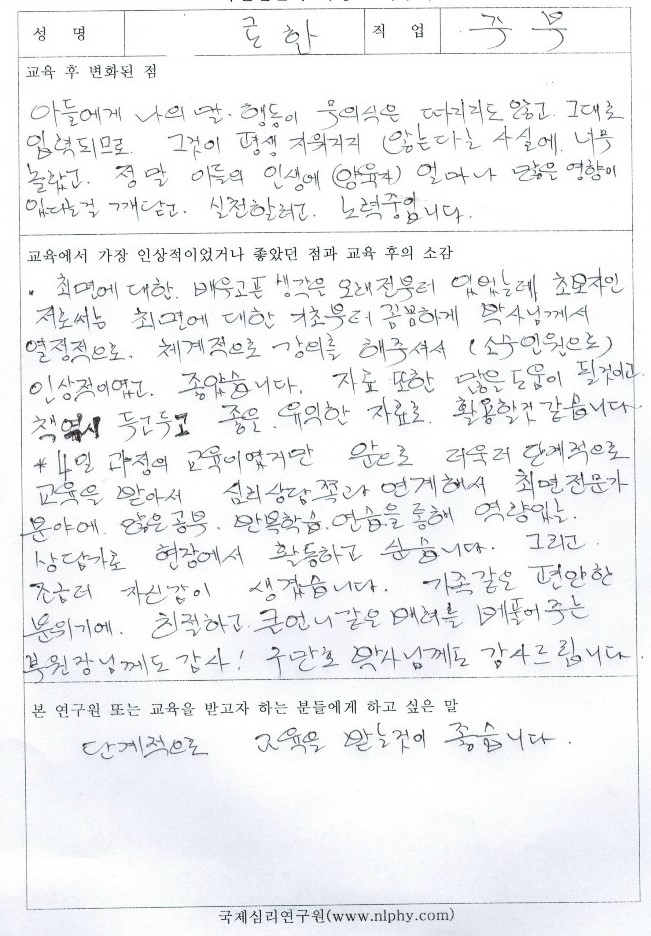 성 명 근한 직 업 주 부
교육 후 변화된 점
아들에게 나의 말·행동이 무의식은 따지지도 않고 그대로
입력되므로 그것이 평생 지워지지 않는다는 사실에 너무
놀랐고 정말 아들의 인생에 (양육자) 얼마나 많은 영향이
있다는걸 깨닫고 실천할려고 노력중입니다.
교육에서 가장 인상적이었거나 좋았던 점과 교육 후의 소감
• 최면에 대한 배우고픈 생각은 오래전부터 있었는데 초보자인
저로써는 최면에 대한 기초부터 꼼꼼하게 박사님께서
열정적으로. 체계적으로 강의를 해주셔서 (소수인원으로)
인상적이였고. 좋았습니다. 자료 또한 많은 도움이 될것이고
책역시 두고두고 좋은 유익한 자료로 활용할것 같습니다.
* 4일 과정의 교육이였지만 앞으로 더욱더 단계적으로
교육을 받아서 심리상담쪽과 연계해서 최면전문가
분야에 많은공부. 반복학습. 연습을 통해 역량있는
상담가로 현장에서 활동하고 싶습니다. 그리고
조금더 자신감이 생겼습니다. 가족같은 편안한
분위기에 친절하고 큰언니같은 배려를 베풀어주는
부원장님께도 감사! 구만호 박사님께도 감사드립니다.
본 연구원 또는 교육을 받고자 하는 분들에게 하고 싶은 말
단계적으로 교육을 받는것이 좋습니다.
국제심리연구원(www.nlphy.com)